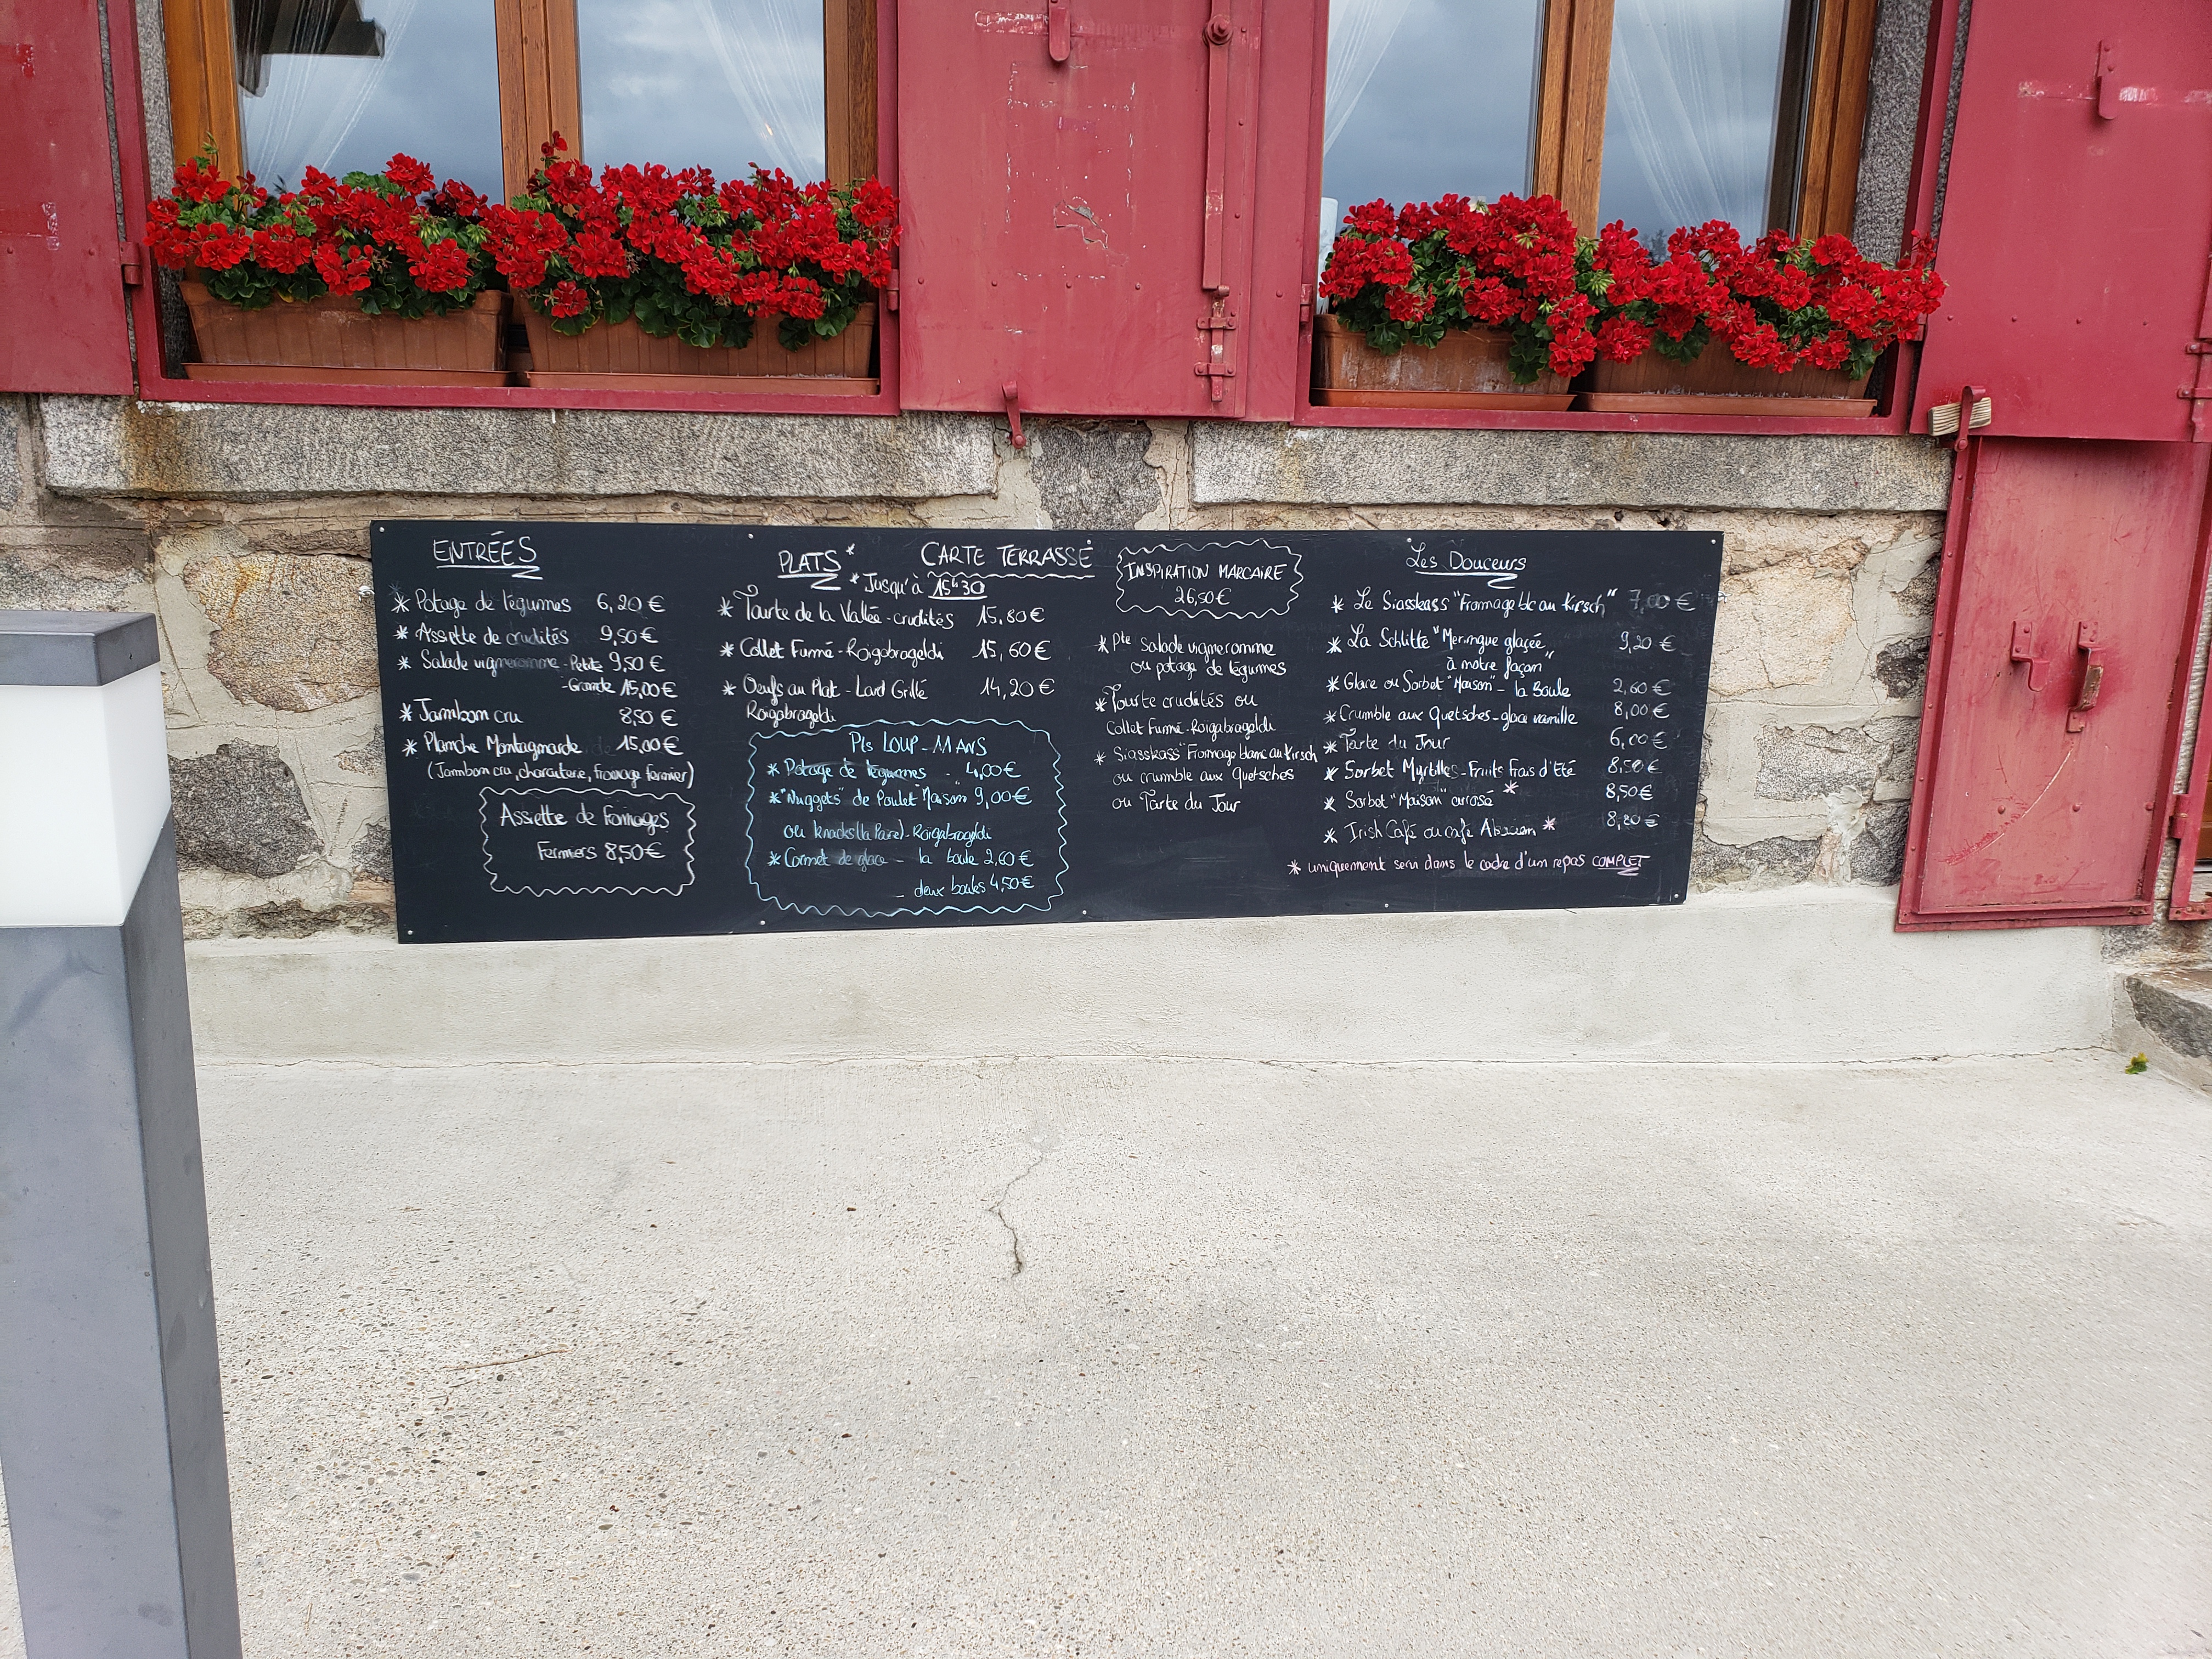 ENTRÉES
* Potage de légumes 6,20 €
* Assiette de crudités 9,50 €
* Salade vigneronne - Petite 9,50 €
- Grande 15,00 €
* Jambon cru 8,50 €
* Planche Montagnarde 15,00 €
(Jambon cru, charcuterie, fromage fermier)
Assiette de fromages
Fermiers 8,50 €
CARTE TERRASSE
PLATS *
* Jusqu'à 15h30
* Tourte de la Vallée - crudités 15,80 €
* Collet Fumé - Roïgabrageldi 15,60 €
* Oeufs au Plat - Lard Grillé 14,20 €
Roïgabrageldi
Pts LOUP-MANS
* Potage de légumes - 4,00 €
* "Nuggets" de Poulet "Maison" 9,00 €
ou knacks (la Paire) - Roïgabrageldi
* Cornet de glace - la boule 2,60 €
- deux boules 4,50 €
INSPIRATION MARCAIRE
26,50 €
* Pte Salade vigneronne
ou potage de légumes
* Tourte crudités ou
Collet Fumé - Roïgabrageldi
* Siasskass "Fromage blanc au Kirsch
ou crumble aux quetsches
ou Tarte du Jour
Les Douceurs
* Le Siasskass "Fromage blc au Kirsch" 7,00 €
* La Schlitte "Meringue glacée 9,20 €
à notre façon"
* Glace ou Sorbet "Maison" - la Boule 2,60 €
* Crumble aux Quetsches - glace vanille 8,00 €
* Tarte du Jour 6,00 €
* Sorbet Myrtilles - Fruits Frais d'Eté 8,50 €
* Sorbet "Maison" arrosé * 8,50 €
* Irish Café ou café Alsacien * 8,80 €
* uniquement servi dans le cadre d'un repas COMPLET